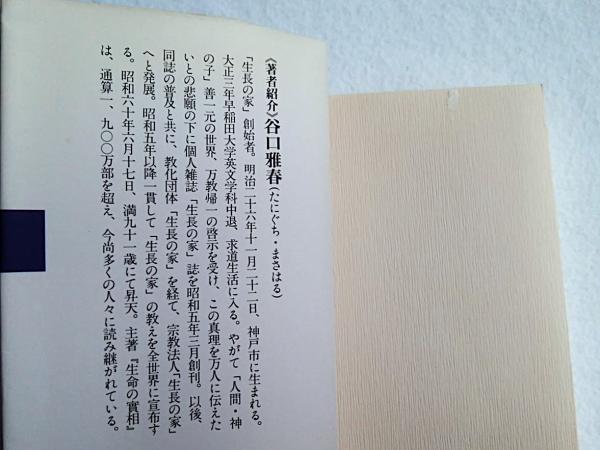 《著者紹介》谷口雅春(たにぐち・まさはる)
「生長の家」創始者。明治二十六年十一月二十二日、神戸市に生まれる。
大正三年早稲田大学英文学科中退、求道生活に入る。やがて「人間・神
の子」善一元の世界、万教帰一の啓示を受け、この真理を万人に伝えた
いとの悲願の下に個人雑誌「生長の家」誌を昭和五年三月創刊。以後、
同誌の普及と共に、教化団体「生長の家」を経て、宗教法人「生長の家」
へと発展。昭和五年以降一貫して「生長の家」の教えを全世界に宣布す
る。昭和六十年六月十七日、満九十一歳にて昇天。主著『生命の實相』
は、通算一、九〇〇万部を超え、今尚多くの人々に読み継がれている。